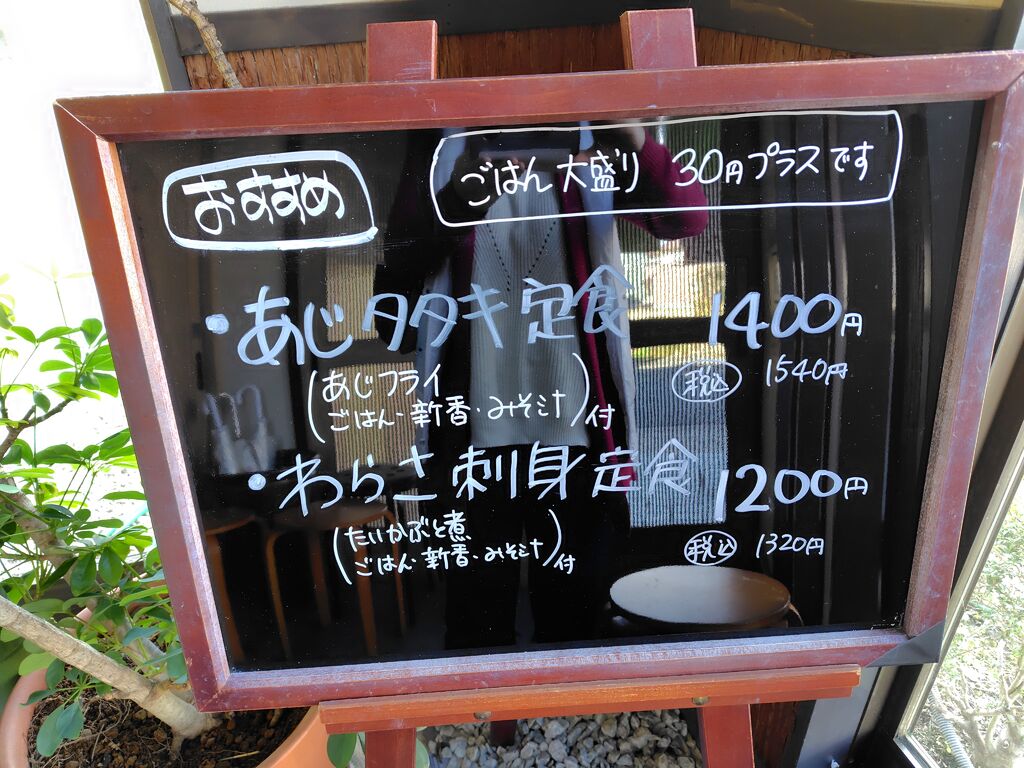 おすすめ
ごはん大盛り 30円プラスです
・あじタタキ定食 1400円
(あじフライ
ごはん・新香・みそ汁)付
税込 1540円
・わらさ刺身定食 1200円
(たいかぶと煮
ごはん・新香・みそ汁)付
税込 1320円